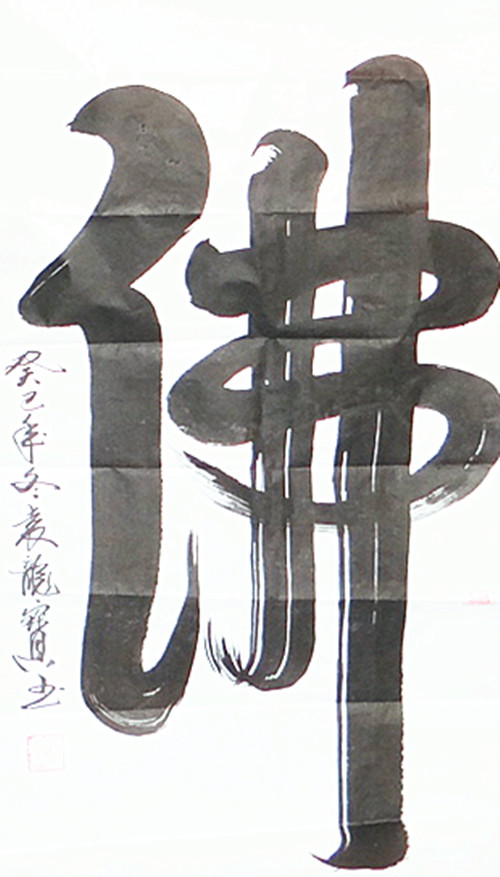 佛
癸巳年冬袁龍寶書